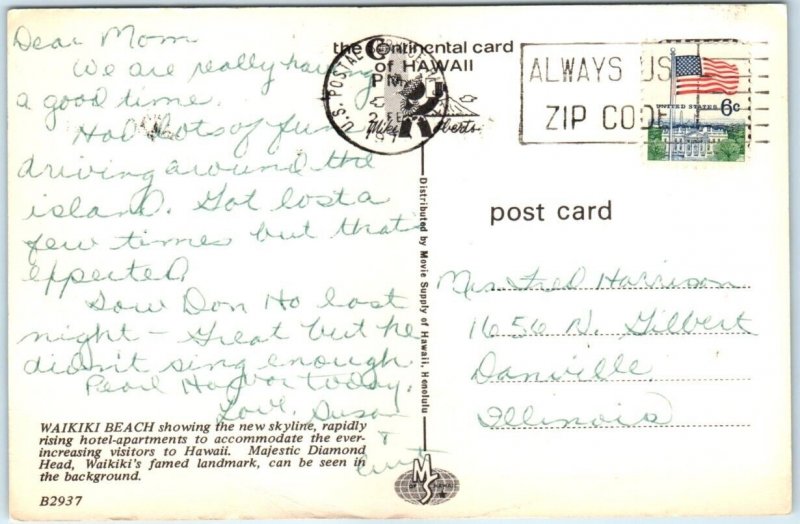 Dear Mom
We are really having
a good time.
Had lots of fun
driving around the
island. Got lost a
few times but that's
expected
Saw Don Ho last
night - Great but he
didn't sing enough
Pearl Harbor today.
Love, Susan
&
WAIKIKI BEACH showing the new skyline, rapidly
rising hotel-apartments to accommodate the ever-
increasing visitors to Hawaii. Majestic Diamond
Head, Waikiki's famed landmark, can be seen in
the background.
B2937
the continental card
of HAWAII
U.S. POSTAL
PM
ALWAYS USE
ZIP CODE
UNITED STATES 6c
post card
Distributed by Movie Supply of Hawaii, Honolulu
Mrs Fred Harrison
1656 N. Gilbert
Danville
Illinois
MS
OF HAWAII